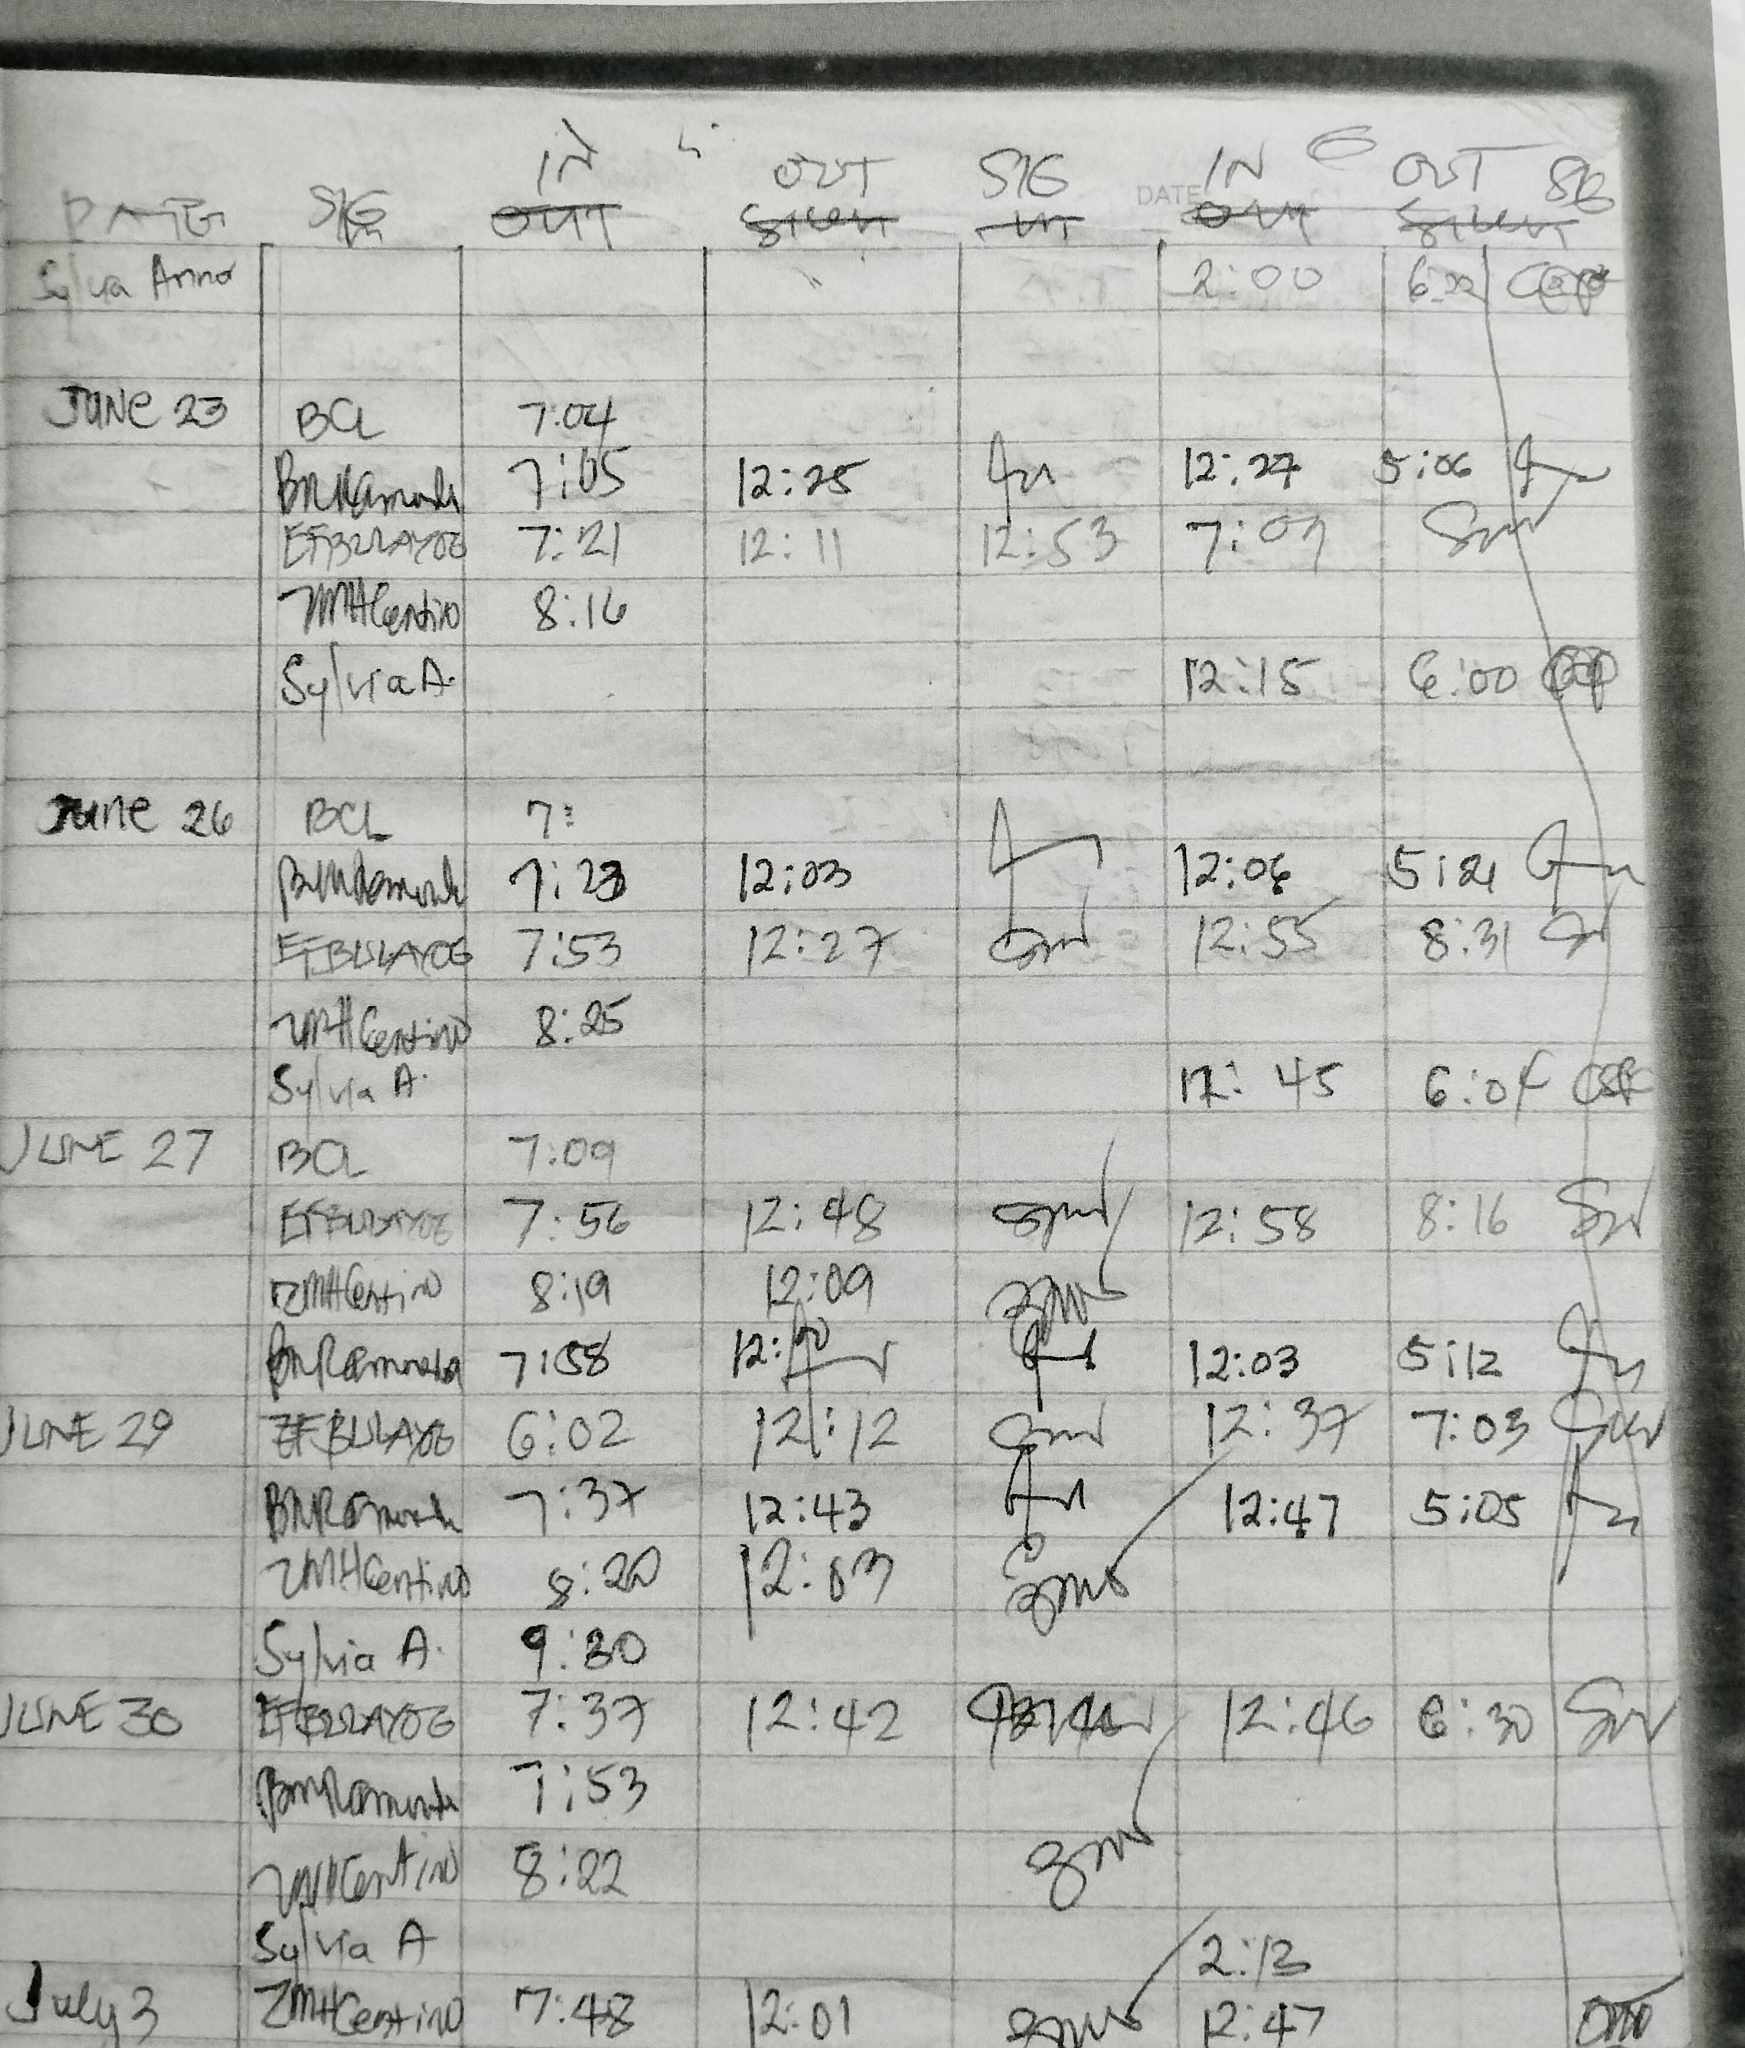 IN OUT SIG DATE IN OUT SIG
DATE SIG OUT OUT
Sylvia Anno 2:00
JUNE 23 BCL 7:04
7:05 12:25 12:27 5:06
EFBULAYOG 7:21 12:11 12:53 7:07
ZMHCentino 8:16
Sylvia A. 12:15 6:00
June 26 BCL 7:
7:23 12:03 12:06 5:21
EFBULAYOG 7:53 12:27 12:55 8:31
ZMHCentino 8:25
Sylvia A. 12: 45 6:04
JUNE 27 BCL 7:09
EFBULAYOG 7:56 12:48 12:58 8:16
ZMHCentino 8:19 12:09
7:58 12:00 12:03 5:12
JUNE 29 EFBULAYOG 6:02 12:12 12:37 7:03
7:37 12:43 12:47 5:05
ZMHCentino 8:20 12:03
Sylvia A. 9:30
JUNE 30 EFBULAYOG 7:37 12:42 12:46 6:30
7:53
ZMHCentino 8:22
Sylvia A 2:13
July 3 ZMHCentino 7:48 12:01 12:47